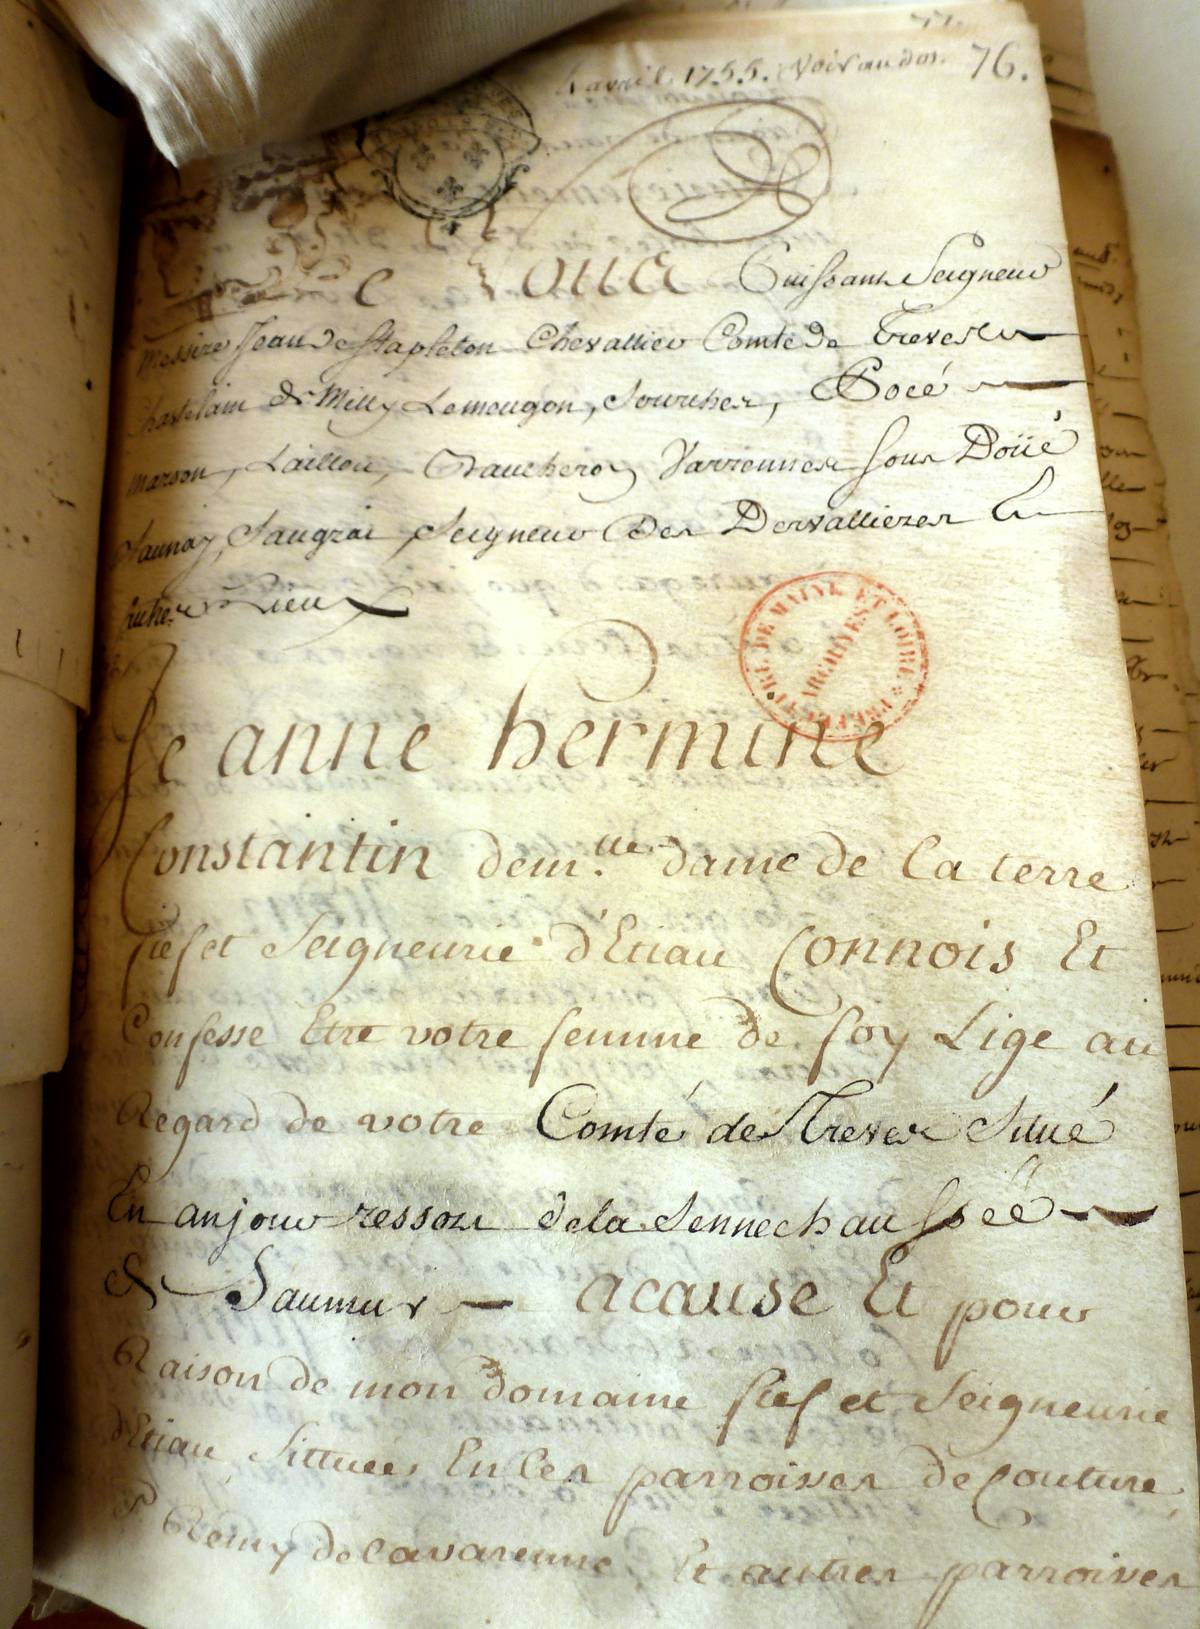 avril 1755. Voir au dos. 76.
De Vous Puissant Seigneur
Messire Jean de Stapleton Chevallier Comte de Treves
Chastelain de Milly Lemeugon, Sourches, Bocé
marson, Laillou, Varrennes sous Doüé
Launay, Saugrai, Seigneur des Dervallieres Et
Autres Lieux
Je anne hermine
Constantin dem.lle dame de la terre
fief et Seigneurie d'Etiau Connois Et
Confesse Etre votre femme de foy Lige au
Regard de votre Comté de Treves Situé
En anjou ressort de la Sennechaussée
de Saumur acause Et pour
Raison de mon domaine fief et Seigneurie
d'Etiau Sittuées En les parroisses de Couture,
St Remy de lavarenne Et autres parroisses
PREFECT.RE DE MAINE ET LOIRE
ARCHIVES